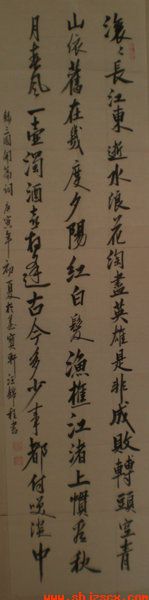 滾々長江東逝水浪花淘盡英雄是非成敗轉頭空青
山依舊在幾度夕陽紅白髮漁樵江渚上慣看秋
月春風一壺濁酒喜相逢古今多少事都付笑談中
錄三國開篇詞庚寅年初夏於墨寶軒汪錦書